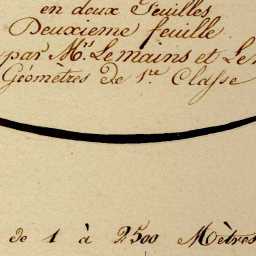 en deux Feuilles
Deuxieme feuille.
par Mrs. Lemains et Le
Géomètres de 1re. Classe
de 1 à 2500 Mètres